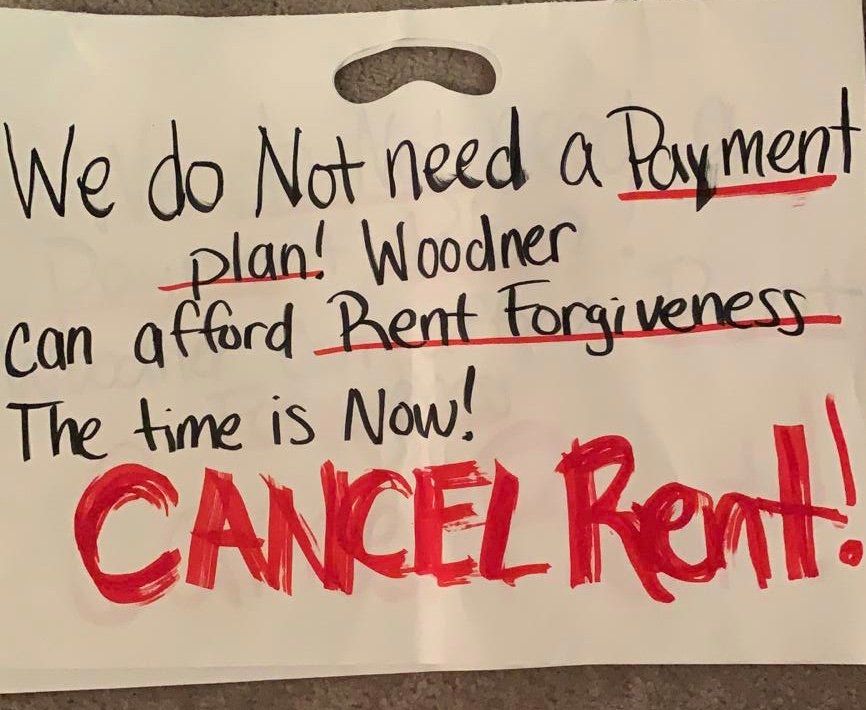 We do Not need a Payment
plan! Woodner
can afford Rent Forgiveness
The time is Now!
CANCEL Rent!